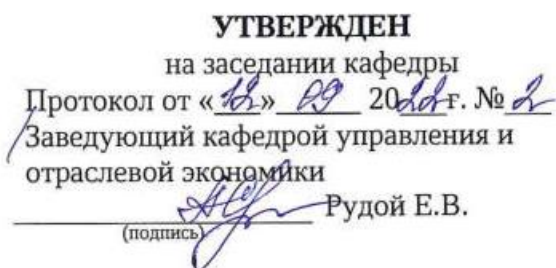 УТВЕРЖДЕН
на заседании кафедры
Протокол от «12» 09 2022г. № 2
Заведующий кафедрой управления и
отраслевой экономики
Рудой Е.В.
(подпись)